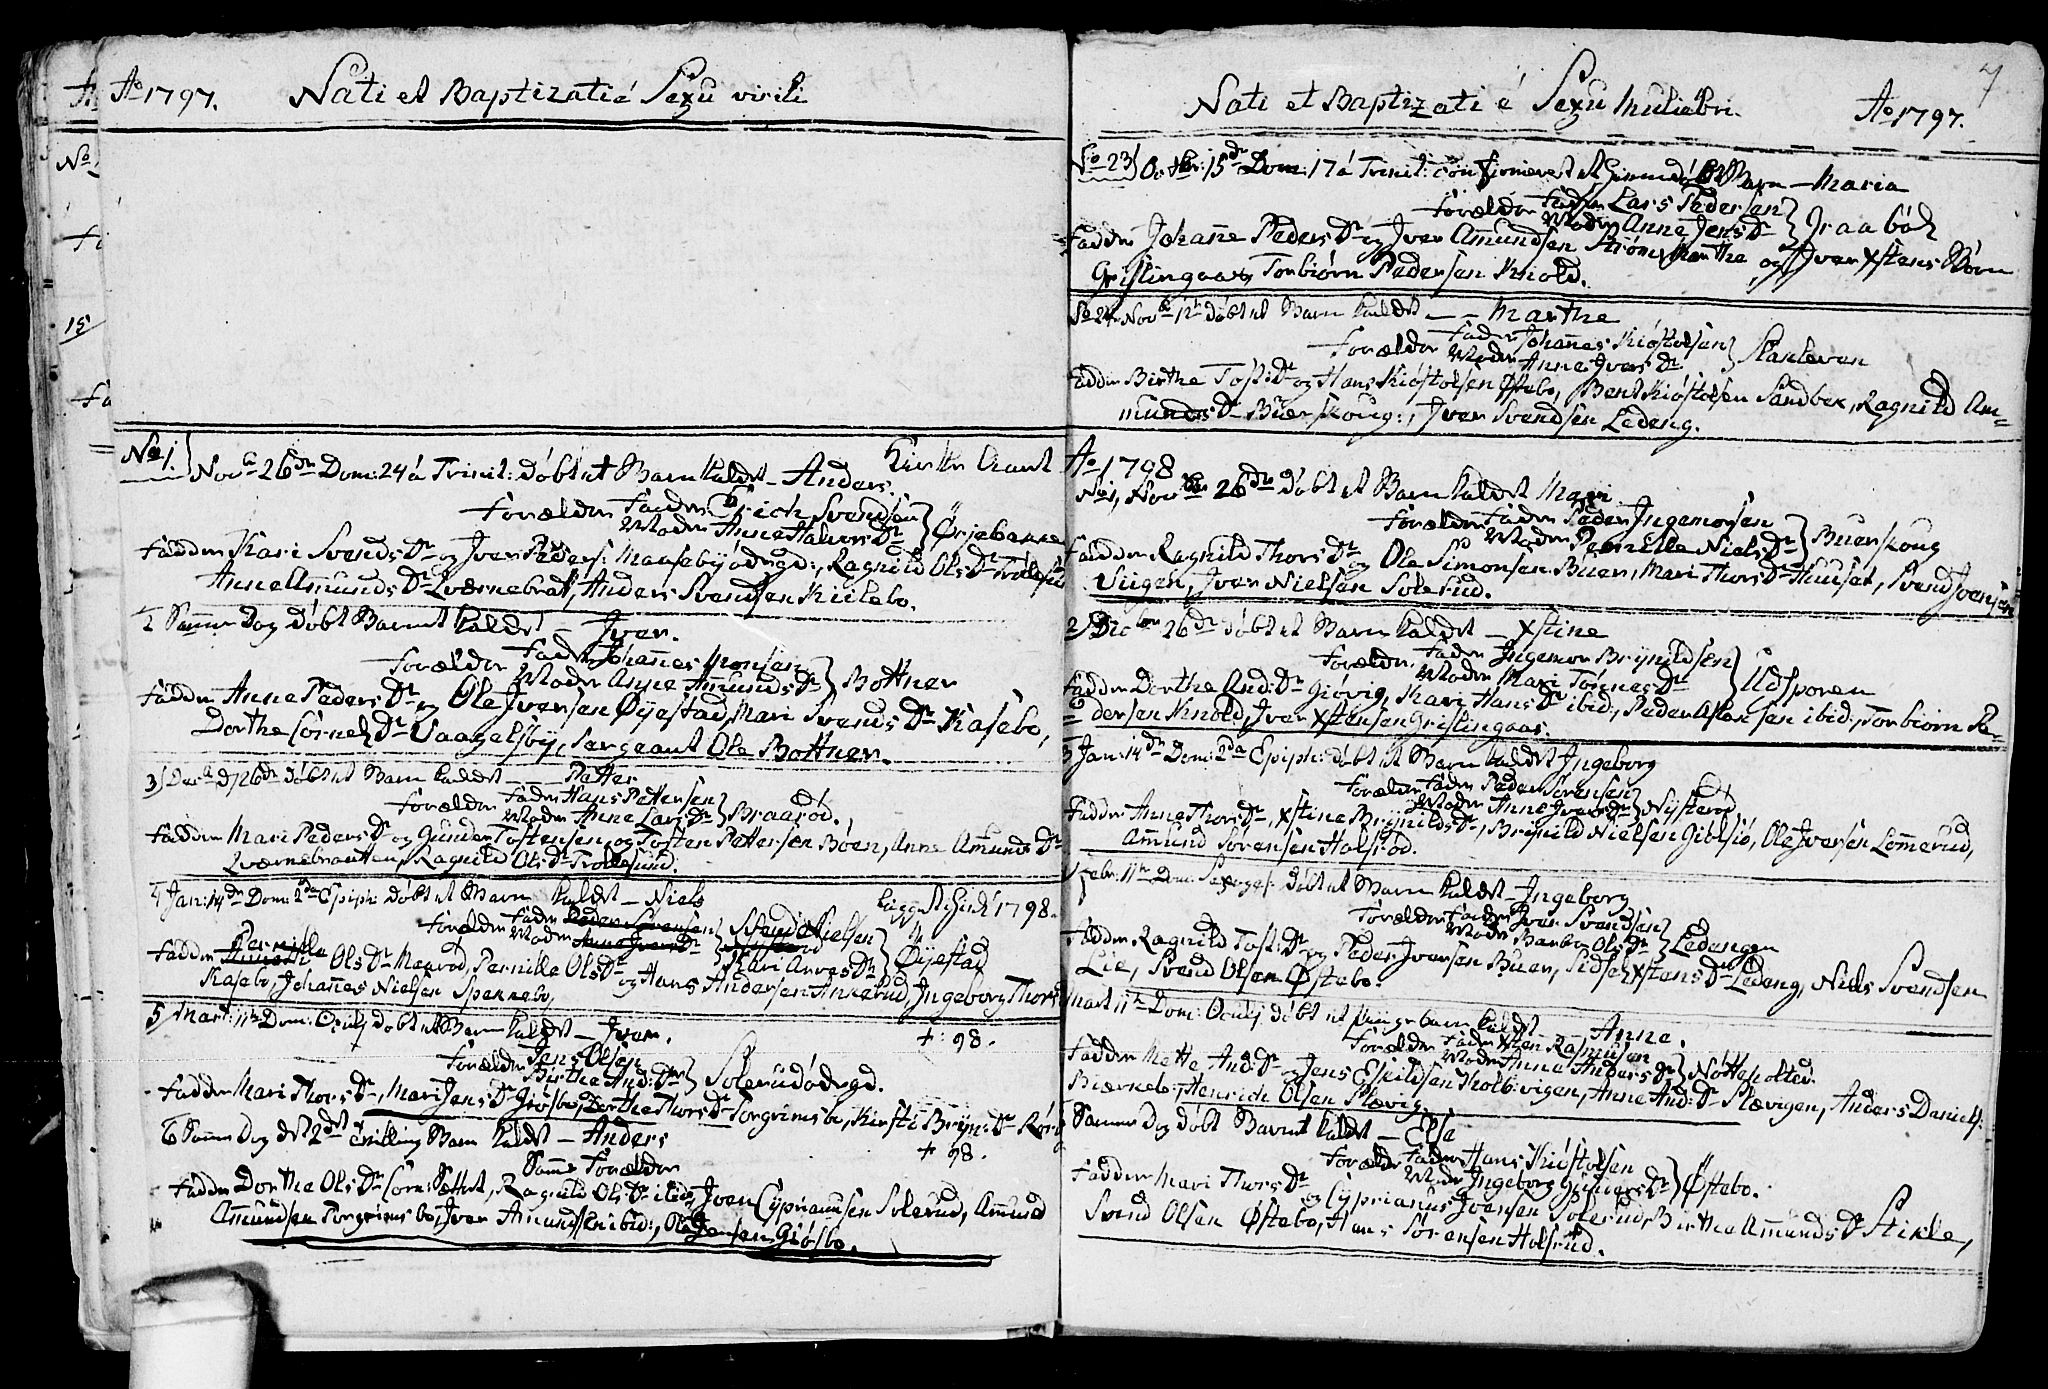 Ao 1797. Nati et Baptizati é Sexu virili
No 1. Novb 26de Dom: 24 á Trinit: døbt et Barn kaldet – Anders. Kirke Aaret
Forældre Fader Erich Svendsen
Moder Anne Halvors Dr } Ørjebakke
Fadder Kari Svends Dr og Jver Peders: Maasebyødegd:, Ragnild Ols Dr Trollesund
Anne Amunds Dr Qvernebrat, Anders Svendsen Kiilebo.
2 Samme Dag døbt Barnet kaldet – Jver.
Forældre Fader Johañes Monsen
Moder Anne Amunds Dr } Bottner
Fadder Anne Peders Dr og Ole Jversen Øyestad, Mari Svends Dr Kasebo,
Dorthe Cornel Dr Vaagelsby, Sergeant Ole Bottner.
3 Decb d/26de døbt et Barn kaldet – Petter
Forældre Fader Hans Pettersen
Moder Anne Lars Dr } Braarød.
Fadder Mari Peders Dr og Gunder Tostensen og Tosten Pettersen Bøen, Anne Amunds Dr
Qværnebratten, Ragnild Ols Dr Trollesund.
4 Jan: 14de Dom: 2da Epiph: døbt et Barn kaldet – Niels 1798.
Forældre Fader Peder Sørensen Svend Nielsen
Moder Anne Jvers Dr Nysterød Mari Arves Dr } Øyestad
Fadder Pernille Ols Dr Maarud, Pernille Ols Dr og Hans Andersen Ankerud, Ingeborg Thors
Kasebo, Johañes Nielsen Spernebo,
5 Mart: 11te Dom: Oculj døbt et Barn kaldet – Jver. †: 98.
Forældre Jens Olsen
Birthe And: Dr } Solerudødegd.
Fadder Mari Thors Dr, Mari Jens Dr Giøsbo, Dorthe Thors Dr Torgrimsbo, Kirsti Brÿn: Dr
6 Samme Dag det 2det Tvilling Barn kaldet – Anders † 98.
Samme Forældre
Fadder Dorthe Ols Dr Ragnild Ols Dr ibid, Jver Cyprianusen Solerud, Amund
Amundsen Torgrimsbo, Jver Amundsen ibid:, Ole Jensen Giøsbo.
7
Nati et Baptizati é Sexu muliebri. Ao 1797.
No 23 Octbr: 15de Dom: 17 á Trinit: confirmeret et hjemmedøbt Barn – Maria
Forældre Fader Lars Pedersen
Moder Anne Jens Dr } Graabøl
Fadder Johañe Peders Dr og Jver Amundsen Strøm, Marthe og Jver Xstens Børn
Grislingaas, Torbiørn Pedersen Knold.
No 24 Novb 12te døbt et Barn kaldet – – Marthe
Forældre Fader Johañes Kiøstolsen
Moder Anne Jvers Dr } Skakleven
Fadder Birthe Tost: Dr og Hans Kiøstolsen Østebo, Bent Kiøstolsen Sandbek, Ragnild Am-
munds Dr Buerskoug:, Jver Svendsen Ledeng.
Ao 1798
No 1, Novbr 26de døbt et Barn kaldet Mari
Forældre Fader Peder Ingemorsen
Moder Pernille Niels Dr } Buerskoug
Fadder Ragnild Thors Dr og Ole Simonsen Buer, Mari Thors Dr Huuset, Svend Jversen
Viigen, Jver Nielsen Solerud.
2 Decbr 26de døbt et Barn kaldet – Xstine
Forældre Fader Ingemor Brÿnildsen
Moder Mari Tønnes Dr } Udsporen
Fadder Dorthe And: Dr Giøvig, Mari Hans Dr ibid:, Peder Aslaksen ibid:, Torbiørn Pe-
dersen Knold, Jver Xstensen Grislingaas.
3 Jan: 14de Dom: 2da Epiph: døbt et Barn kaldet Ingeborg
Forældre Fader Peder Sørensen
Moder Anne Jvers Dr } Nysterød
Fadder Anne Thors Dr, Xstine Brynilds Dr, Brynild Nielsen Giølsiø, Ole Jversen Lømmerud,
Amund Sørensen Holsrød.
Febr: 11te Dom: Sexages: døbt et Barn kaldet – Ingeborg
Forældre Fader Jver Svendsen
Moder Barbro Ols Dr } Ledengen
Fadder Ragnild Tost: Dr og Peder Jversen Buer, Sidsel Xstens Dr Ledeng, Niels Svendsen
Lie, Svend Olsen Østebo.
Mart 11te Dom: Oculj døbt et Pigebarn kaldet – Anne.
Forældre Fader Xsten Rasmusen
Moder Anne Anders Dr } Nøtteholted.
Fadder Mette And: Dr og Jens Eskildsen Kolbvigen, Anne And: Dr Slævigen, Anders Daniels:
Biørnebo, Henrich Olsen Slævig.
Samme Dag døbt Barnet kaldet – Else
Forældre Fader Hans Kiøstolsen
Moder Ingeborg Gunders Dr } Østebo.
Fadder Mari Thors Dr og Cÿprianus Jversen Solerud, Birthe Ammunds Dr Stikle,
Svend Olsen Østebo, Hans Sørensen Holsrud.